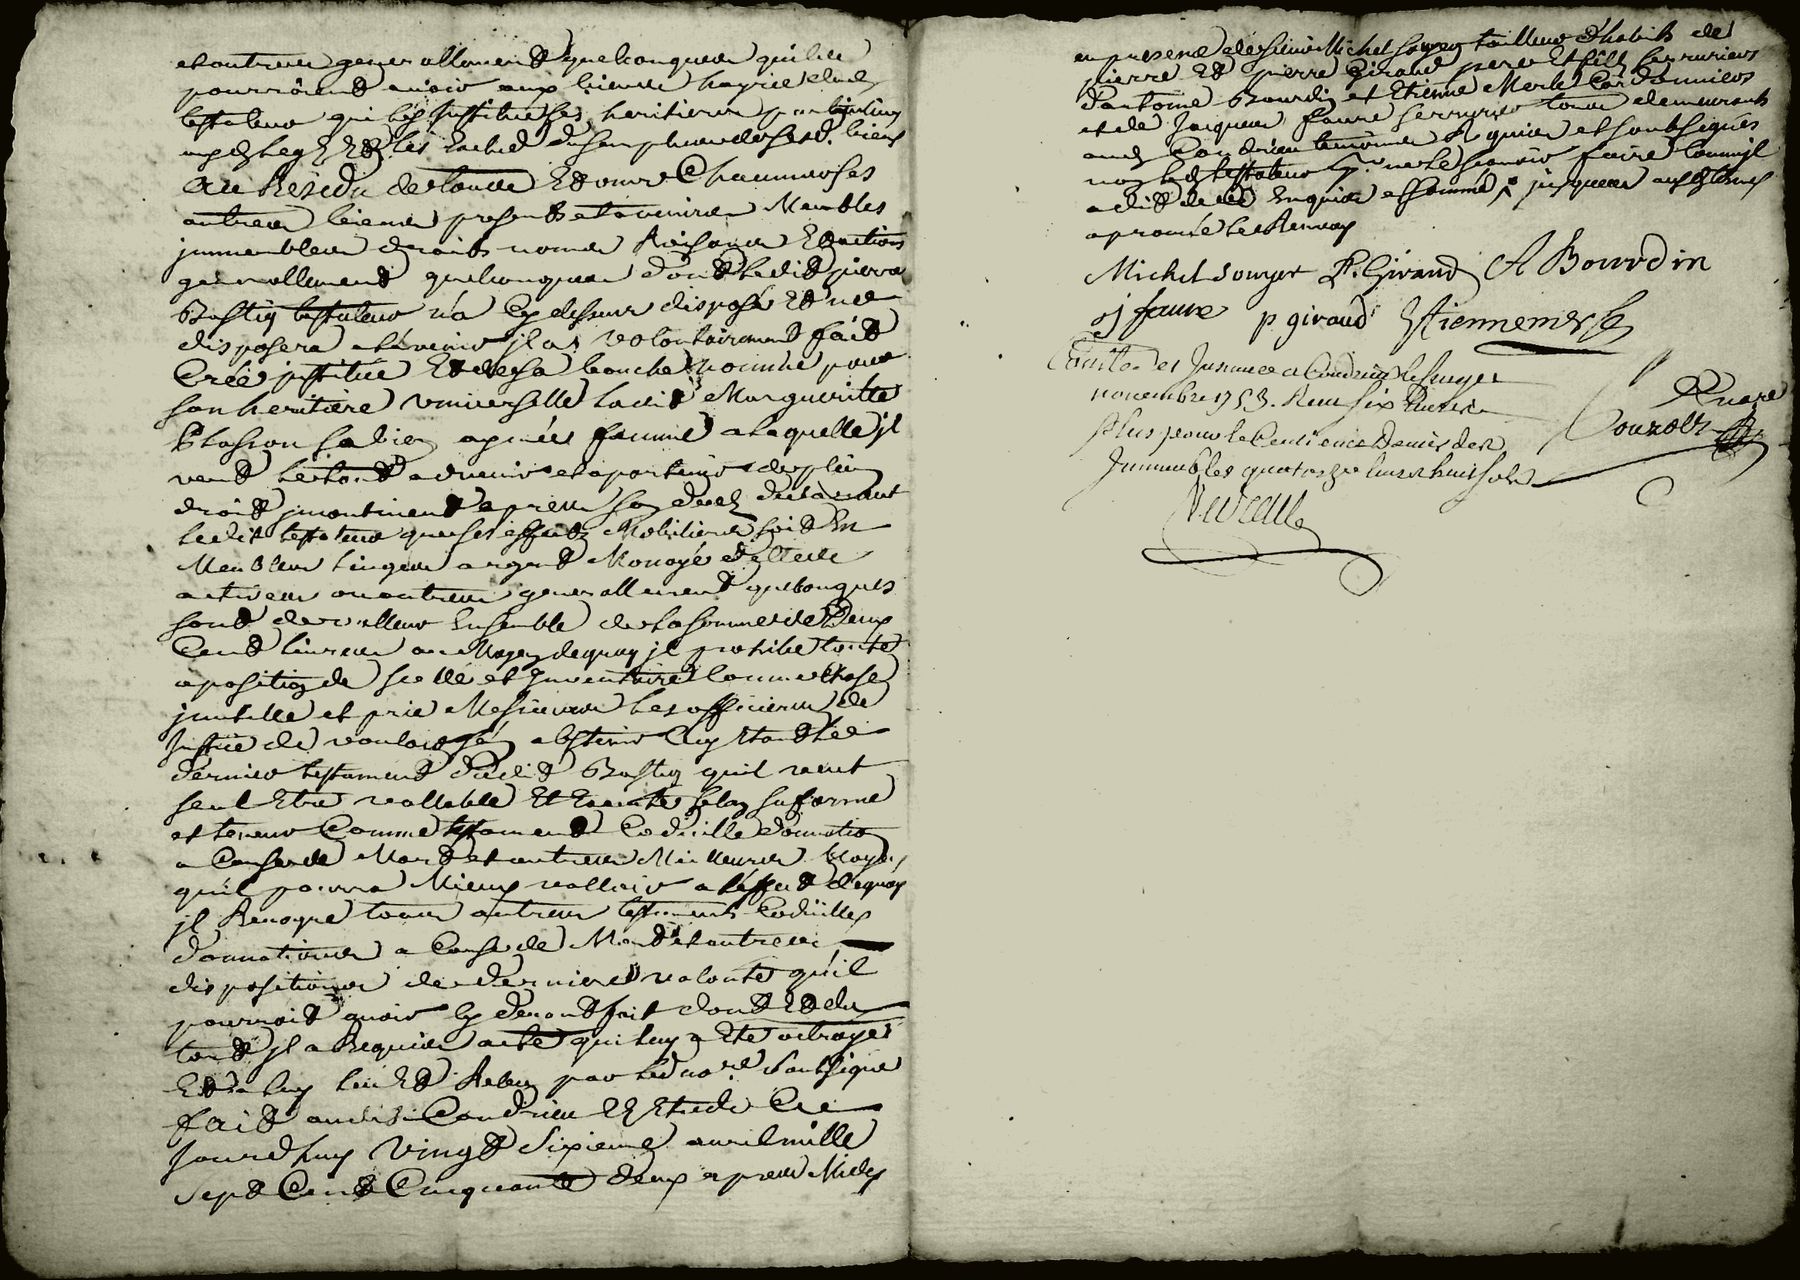 et autres generallement quelconques qu'ils
pourroient avoir aux biens hoyrie dud
testateur qui les jnstitue ses heritiers particuliers
Au Residu de toutes Et ones Chacunes ses
autres biens presents et avenir Meubles
jmmeubles droits noms Raisons Et actions
generallement quelconques dont ledit pierre
Bastin testateur n'a Cy dessus disposé Et ne
disposera a l'avenir jl a volontairement fait
Créé jnstitué Et de sa bouche nommé pour
son heritiere vniverselle ladite Margueritte
sa bien aymée femme a laquelle jl
veut le tout advenir et apartenir de plein
droit jncontinent apres son deces declarant
ledit testateur que ses effects Mobiliers soit En
Meubles linges argent Monoyé dettes
actives ou autres generallement quelconques
sont de valleur Ensemble de la somme de Deux
Cent livres au Moyen de quoy jl prohibe toute
aposition de scellé et Jnventaire Comme Chose
jnutille et prie Messieurs les officiers de
Justice de vouloir s'en abstenir Cecy Etant le
dernier testament dudit Bastin qu'il veut
seul Etre vallable Et Executé selon sa forme
et teneur Comme testament Codicille donnation
a Cause de Mort et autres Meilleurs Moyens
qu'il pourra Mieux valloir a l'effect de quoy
jl Revoque tous autres testaments Codicilles
donnations a Cause de Mort et autres
dispositions de derniere volonté qu'il
pourroit avoir Cy devant fait dont Et du
tout jl a Requis acte qui luy a Eté octroyé
Et a luy leu Et Releu par led nore soubsigné
fait audit Condrieu En Etude Ce
Jourdhuy vingt Sixieme avril mille
Sept Cent Cinquante deux apres Midy
en presence de sieurs Michel Souzer tailleur d'habits de
pierre Et pierre Giraud pere Et fils serruriers
d'antoine Bourdin et Etienne Merle Cordonniers
et de Jacques faure serrurier tous demeurants
aud Condrieu temoins Requis et soubsignés
non led testateur pr ne le scavoir faire Comme jl
a dit de ce Enquis et sommé
aprouvé les Renvoys
Michel Souzer P. Giraud A Bourdin
j faure p giraud Etienne merle
Controllé et Jnsinué a Condrieu le
novembre 1753. Reçu six livres
Plus pour le Centieme Denier des
Jmmeubles quatorze livres huit sols